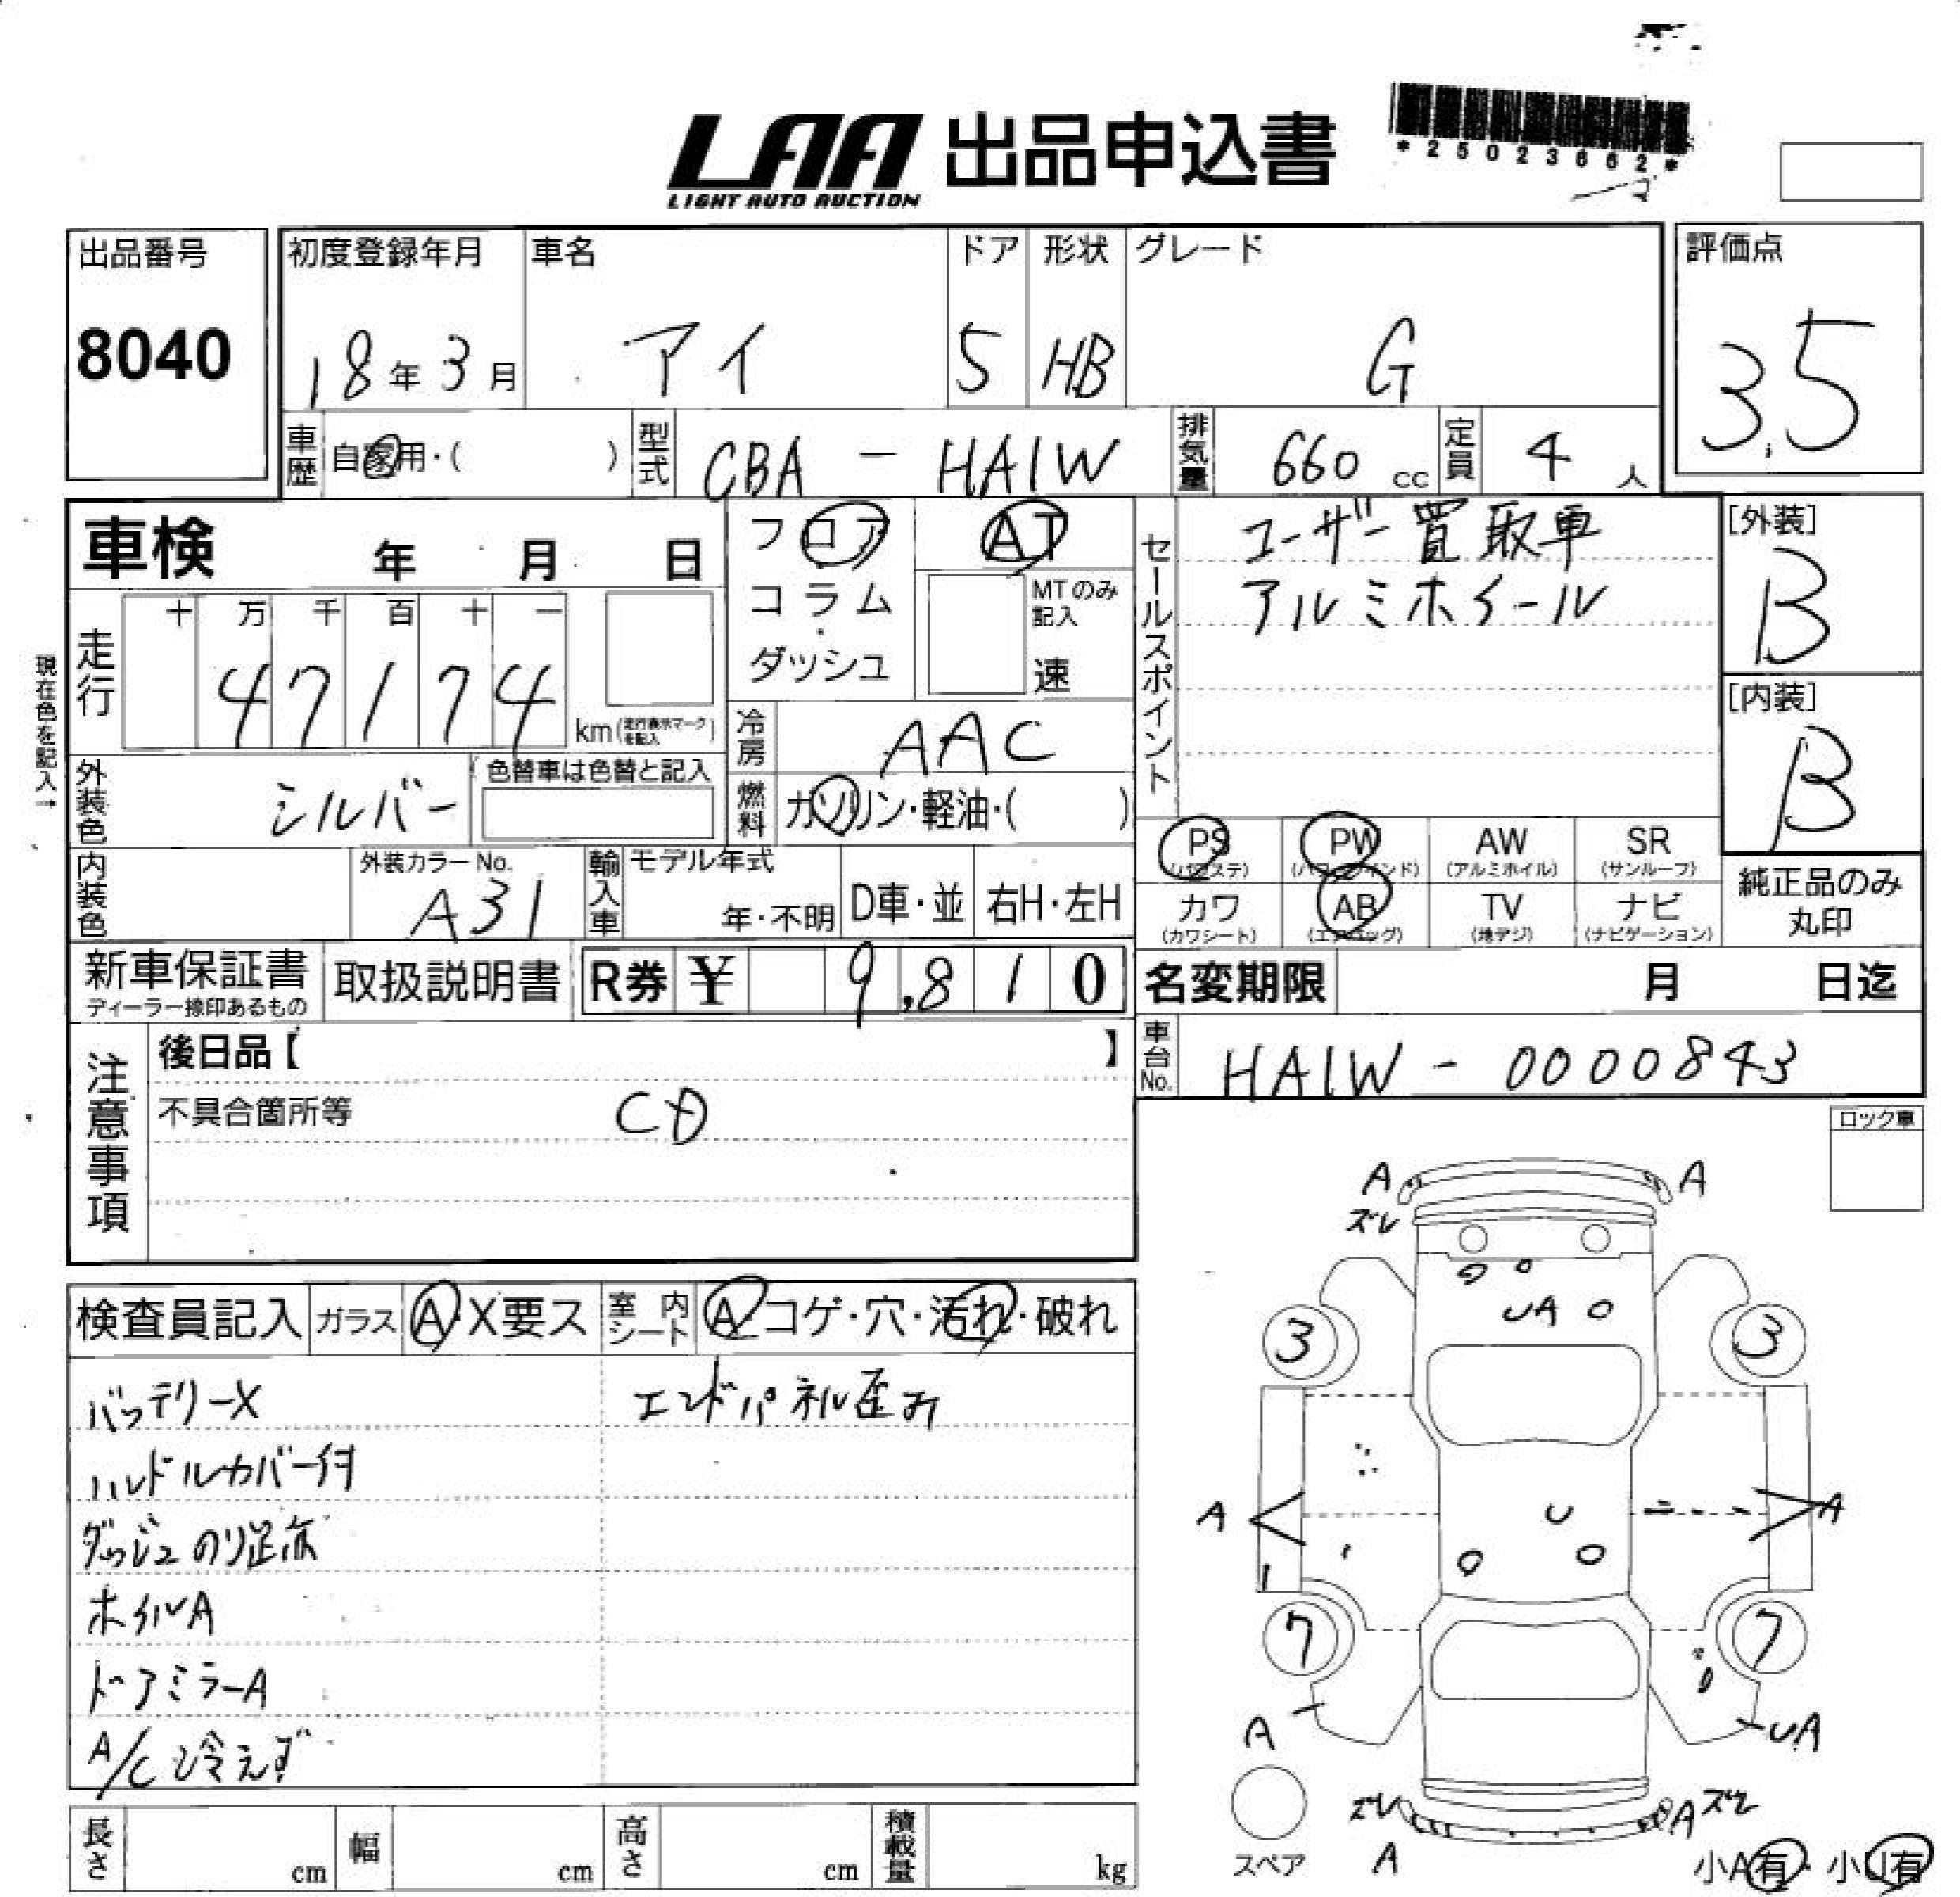 LAA 出品申込書
LIGHT AUTO AUCTION
*25023662*
出品番号
8040
初度登録年月
18年3月
車名
アイ
ドア
5
形状
HB
グレード
G
評価点
3.5
車歴
自家用・( )
型式
CBA-HA1W
排気量
660 cc
定員
4 人
車検 年 月 日
フロア
コラム
・
ダッシュ
AT
MTのみ
記入
速
セールスポイント
ユーザー買取車
アルミホイール
[外装]
B
[内装]
B
現在色を記入→
走行
十 万 千 百 十 一
47174
km(走行表示マークを記入)
冷房
AAC
外装色
シルバー
色替車は色替と記入
燃料
ガソリン・軽油・( )
内装色
外装カラーNo.
A31
輸入車
モデル年式
年・不明
D車・並
右H・左H
PS
(パワステ)
PW
(パワーウインド)
AW
(アルミホイル)
SR
(サンルーフ)
カワ
(カワシート)
AB
(エアバッグ)
TV
(地デジ)
ナビ
(ナビゲーション)
純正品のみ
丸印
新車保証書
ディーラー捺印あるもの
取扱説明書
R券 ¥ 9,810
名変期限 月 日迄
車台No.
HA1W-0000843
注意事項
後日品【 】
不具合箇所等
CD
ロック車
検査員記入
ガラス
A・X要ス
室内シート
A コゲ・穴・汚れ・破れ
バッテリーX
エンドパネル歪み
ハンドルカバー付
ダッシュのり跡
ホイルA
ドアミラーA
A/C冷えず
A
A
ズレ
UA
3
3
A
U
A
7
7
A
UA
ズレ
A
A ズレ
スペア
小A有・小U有
長さ cm
幅 cm
高さ cm
積載量 kg